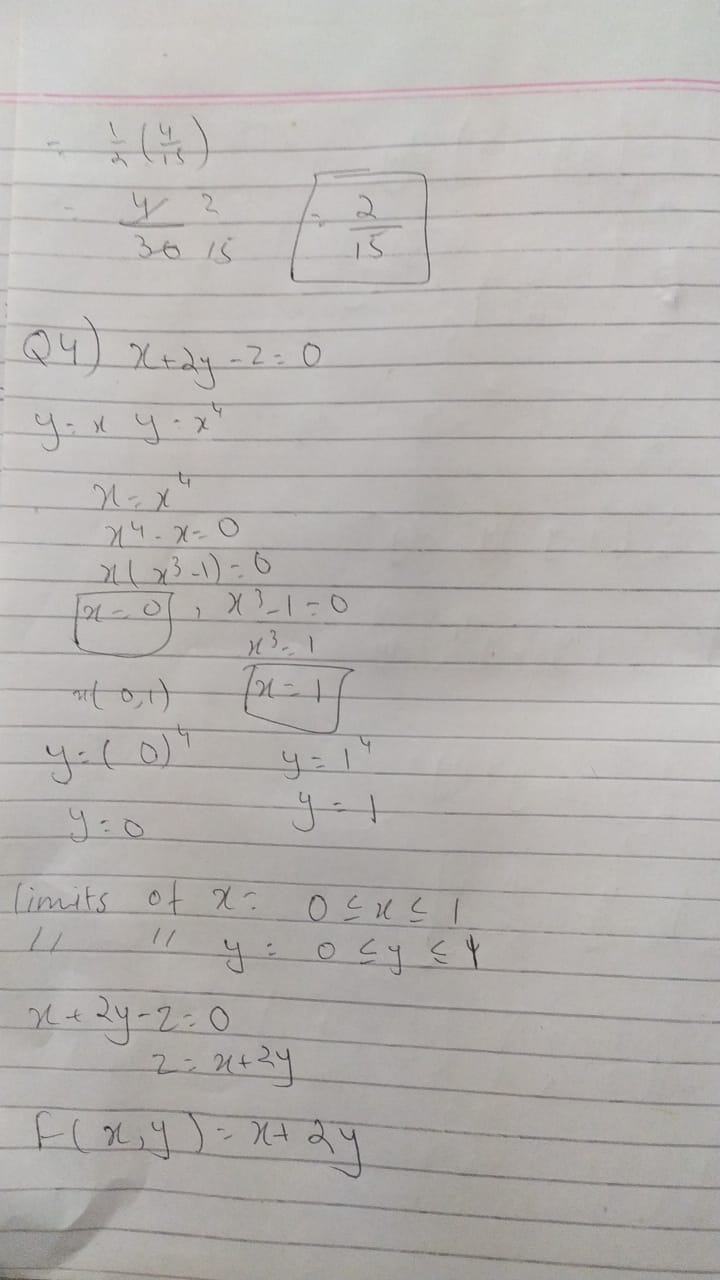 = 1/2 (4/15)
= 4/30 2/15 = 2/15
Q4) x+2y-z=0
y=x y=x⁴
x=x⁴
x⁴-x=0
x(x³-1)=0
x=0, x³-1=0
x³=1
x(0,1) x=1
y=(0)⁴ y=1⁴
y=0 y=1
limits of x = 0≤x≤1
" " y = 0≤y≤
x+2y-z=0
z=x+2y
F(x,y)=x+2y